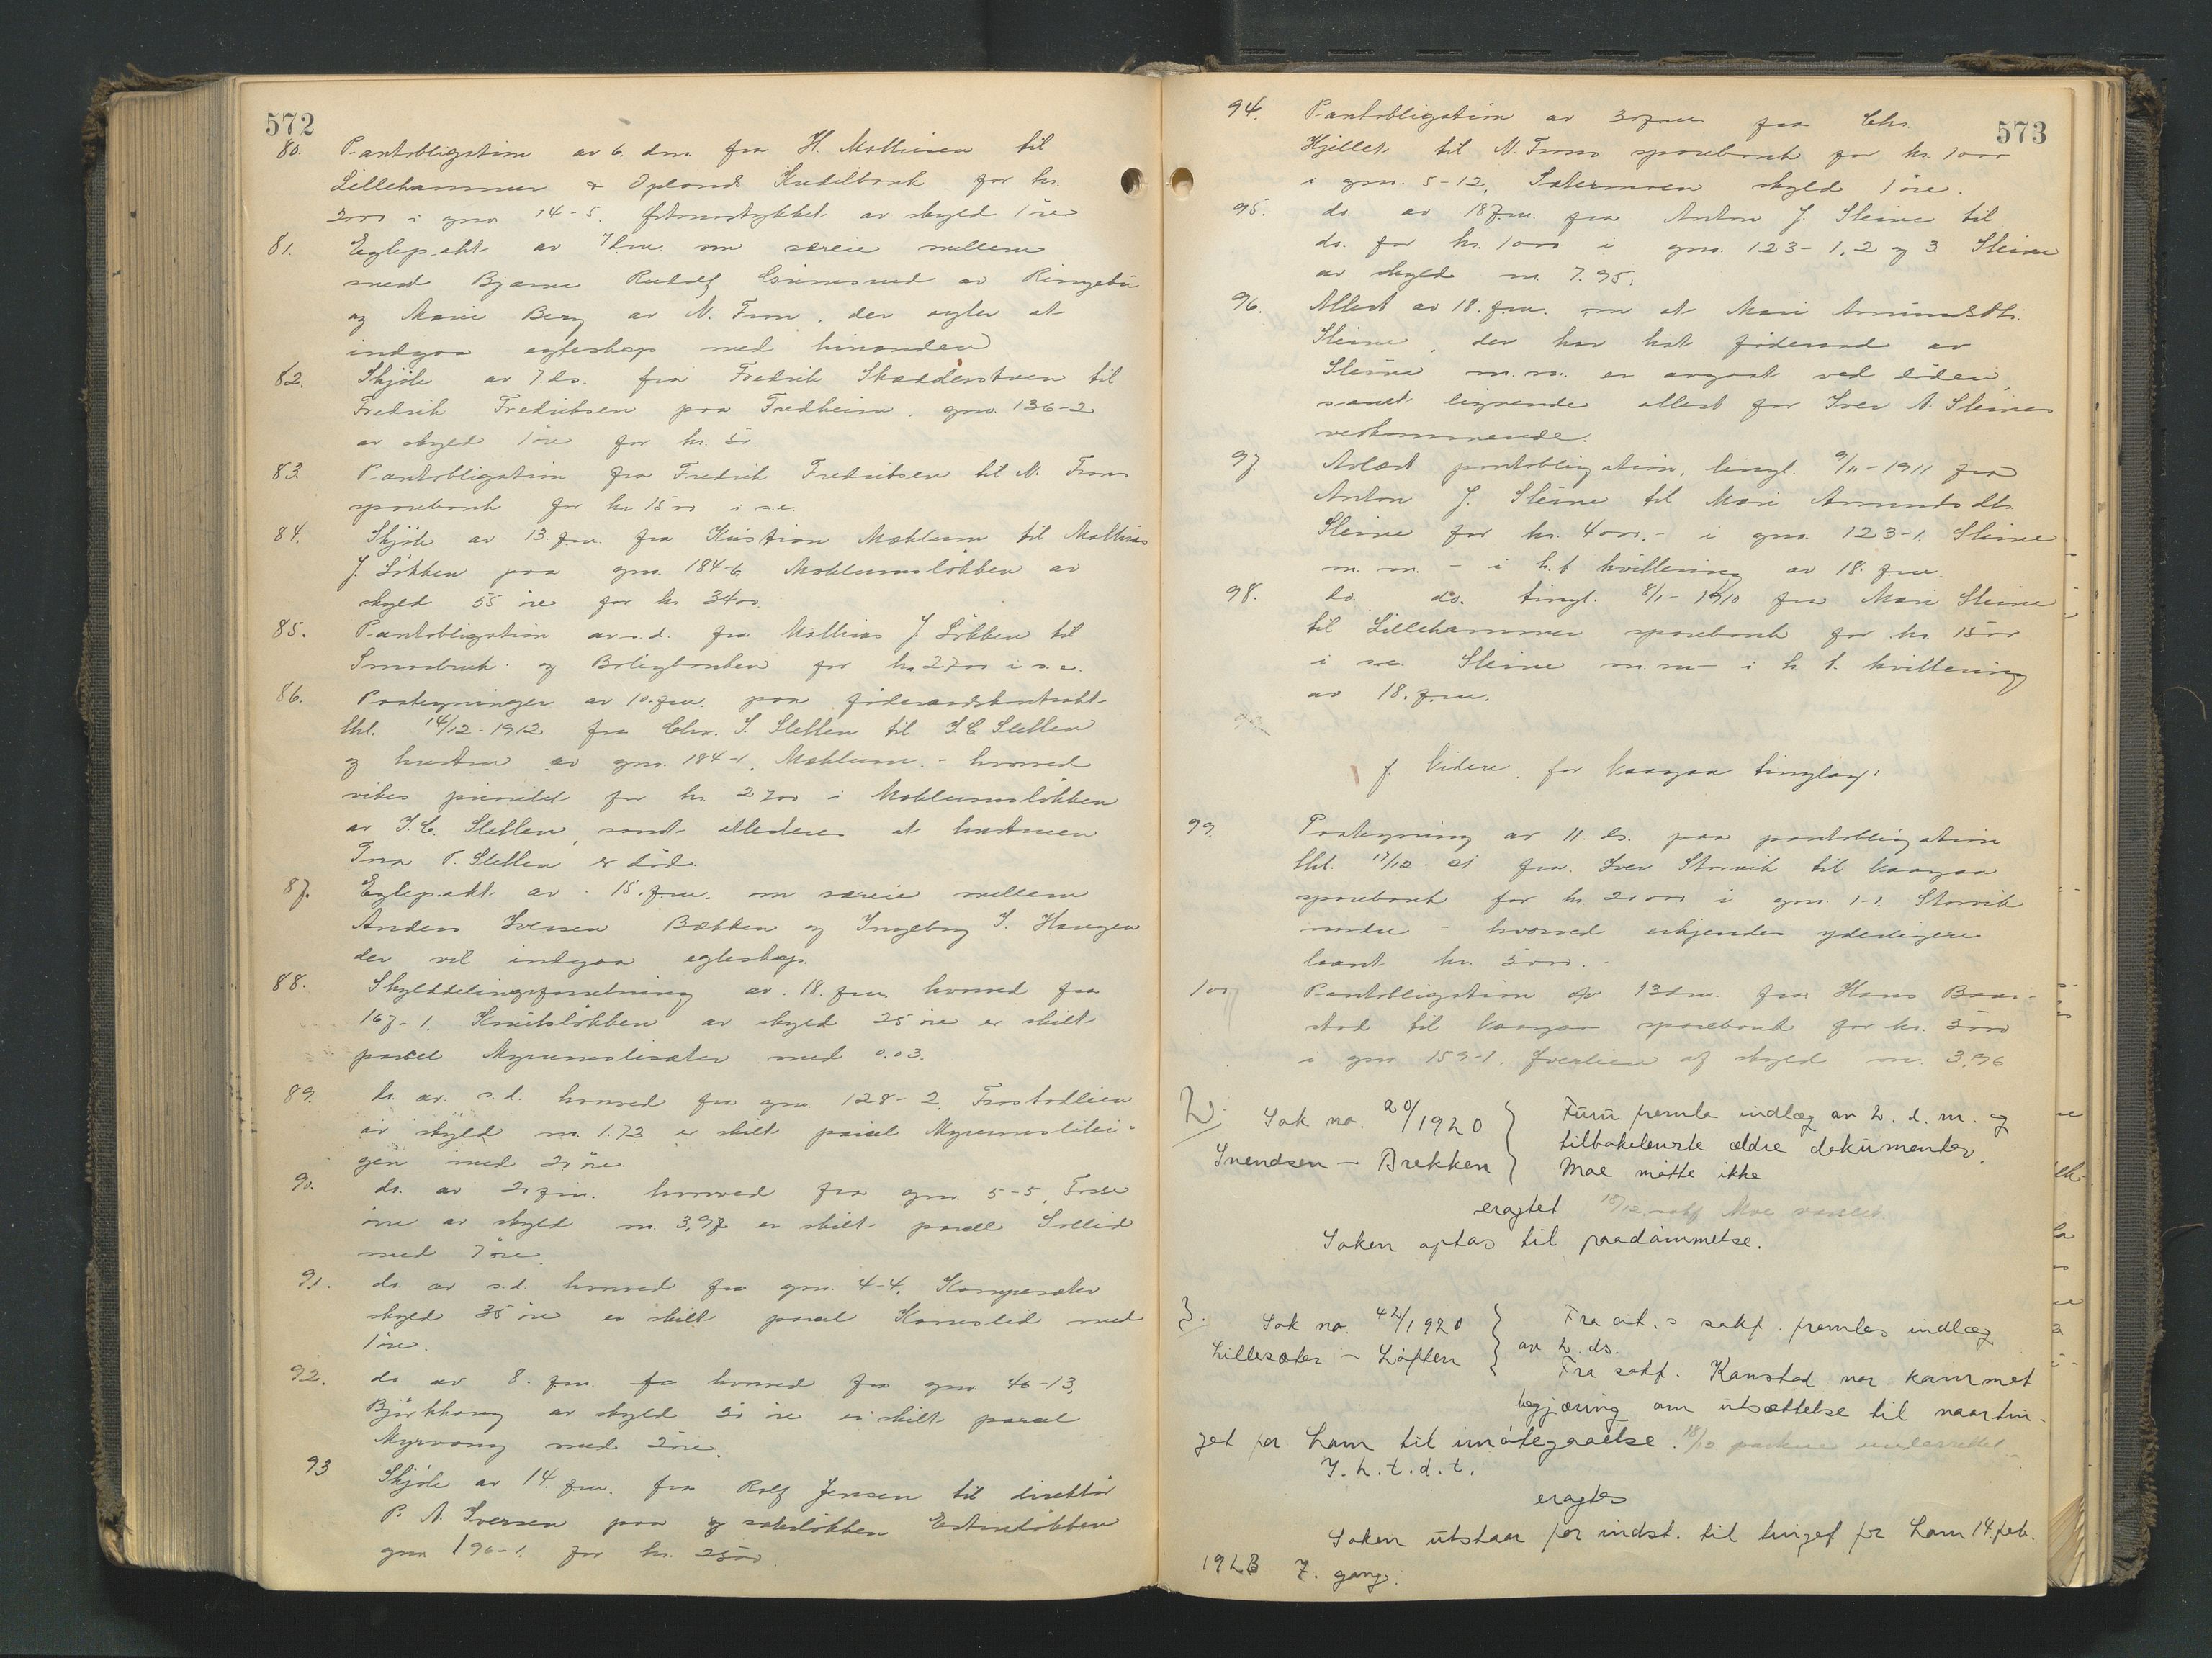 572
80. Pantobligation av 6. dm. fra H. Mathiesen til
Lillehammer & Oplands Kreditbank for kr.
2000 i gno. 14-5. av skyld 1 øre
81. Egtep.akt av 7 dm. om særeie mellem
Bjarne Rudolf av Ringebu
og Marie Berg av N. Fron, der agter at
indgaa egteskap med hinanden
82. Skjøte av 7. ds. fra Fredrik til
Fredrik Fredriksen paa Fredheim, gno. 136-2
av skyld 1 øre for kr. 50.
83. Pantobligation fra Fredrik Fredriksen til N. Frons
sparebank for kr 1500 i s.e.
84. Skjøte av 13. f.m. fra Kristian Mæhlum til Mathias
J. Løkken paa gno. 184-6 Mæhlumsløkken av
skyld 55 øre for kr 3400.
85. Pantobligation av s.d. fra Mathias J. Løkken til
Smaabruk- og Boligbanken for kr. 2700 i s.e.
86. Paategninger av 10. f.m. paa føderaadskontrakt
thl. 14/12-1912 fra Chr. I. Sletten til I. C. Sletten
og hustru av gno. 184-1, Mæhlum. - hvorved
vikes prioritet for kr. 2700 i Mæhlumsløkken
av I. C. Sletten, samt attesteres at hustruen
P. Sletten er død.
87. Egtep.akt av 15. f.m. om særeie mellem
Anders Iversen Bækken og Ingeborg I. Haugen
der vil indgaa egteskap.
88. Skylddelingsforretning av 18. f.m. hvorved fra
167-1. Knutsløkken av skyld 25 øre er skilt
parcel med 0.03.
89. do. av s.d. hvorved fra gno. 128-2
av skyld m. 1.73 er skilt parcel
gen med 20 øre.
90. do. av 20 f.m. hvorved fra gno. 5-5, Fosse
øvre av skyld m. 3,97 er skilt parcel Sollid
med 7 øre.
91. do. av s.d. hvorved fra gno. 4-4,
skyld 35 øre er skilt parcel med
1 øre.
92. do. av 8. f.m. hvorved fra gno. 46-13,
Bjørkhaug av skyld 50 øre er skilt parcel
Myrvang med 2 øre.
93 Skjøte av 14. f.m. fra Rolf Jensen til direktør
P. A. Iversen paa
gno 196-1. for kr. 2500.
573
94. Pantobligation av 30 f.m. fra Chr.
til N. Frons sparebank for kr. 1000
i gno. 5-12, skyld 1 øre.
95. do. av 18 f.m. fra Anton J. Steine til
do. for kr. 1000 i gno. 123-1, 2 og 3 Steine
av skyld m. 7.95.
96. Attest av 18. f.m. om at Mari Amundsdtr.
Steine, der har hat føderaad av
Steine m.m. er avgaat ved døden,
samt lignende attest for Iver A. Steines
vedkommende.
97. Avlæst pantobligation, tingl. 9/11-1911 fra
Anton J. Steine til Mari Amundsdtr.
Steine for kr. 4000.- i gno. 123-1. Steine
m. m. - i h.t. kvittering av 18. f.m.
98. do. do. tingl. 8/1-1910 fra Mari Steine
til Lillehammer sparebank for kr. 1500
i s.e. Steine m.m. i h. t. kvittering
av 18. f.m.
f. Videre for Vaagaa tinglag:
99. Paategning av 11. ds. paa pantobligation
thl. fra Iver Storvik til Vaagaa
sparebank for kr. 20000 i gno. 1-1. Storvik
nordre - hvorved erkjendes yderligere
laant kr. 5000.-
100 Pantobligation av 13 dm. fra Hans Baar-
stad til Vaagaa sparebank for kr. 5000
i gno 159-1. af skyld m. 3.96
2. Sak no. 20/1920 Furu fremla indlæg av 2. d. m. og
tilbakeleverte ældre dokumenter.
Svendsen - Brekken Moe møtte ikke
eragtet 18/12 Moe varslet.
Saken optas til paadømmelse.
3. Sak no. 42/1920 Fra cit.s sakf. fremles indlæg
Lillesæter - Løften av 2. ds.
Fra sakf. Kanstad var kommet
begjæring om utsættelse til vaartin-
get for Lom til imøtegaaelse. 18/12 underrettet
I. h. t. d. t.
eragtes
Saken utstaar for indst. til tinget for Lom 14. feb.
1923 7. gang.